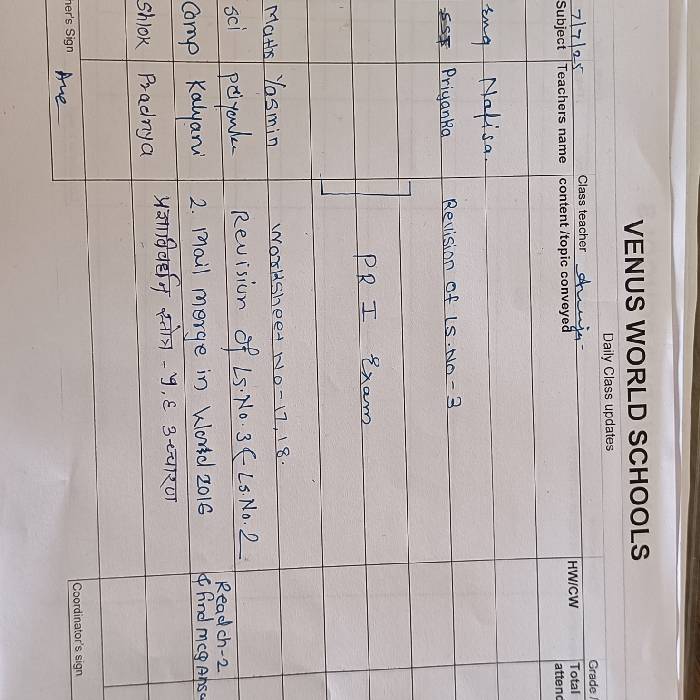 VENUS WORLD SCHOOLS
Daily Class updates
7/7/25 Class teacher Grade /
Subject Teachers name content /topic conveyed HW/CW Total attend
Eng Nafisa.
SST Priyanka Revision of LS.No-3
PR I Exam
Maths Yasmin Worksheet No-17,18.
Sci Priyanka Revision of Ls.No.3 & Ls.No.2 Read ch-2
Comp Kalyani 2. Mail merge in Word 2016 & find mcq Ans
Shlok Pradnya प्रज्ञाविवर्धन स्तोत्र - ५,६ उच्चारण
her's Sign Coordinator's sign